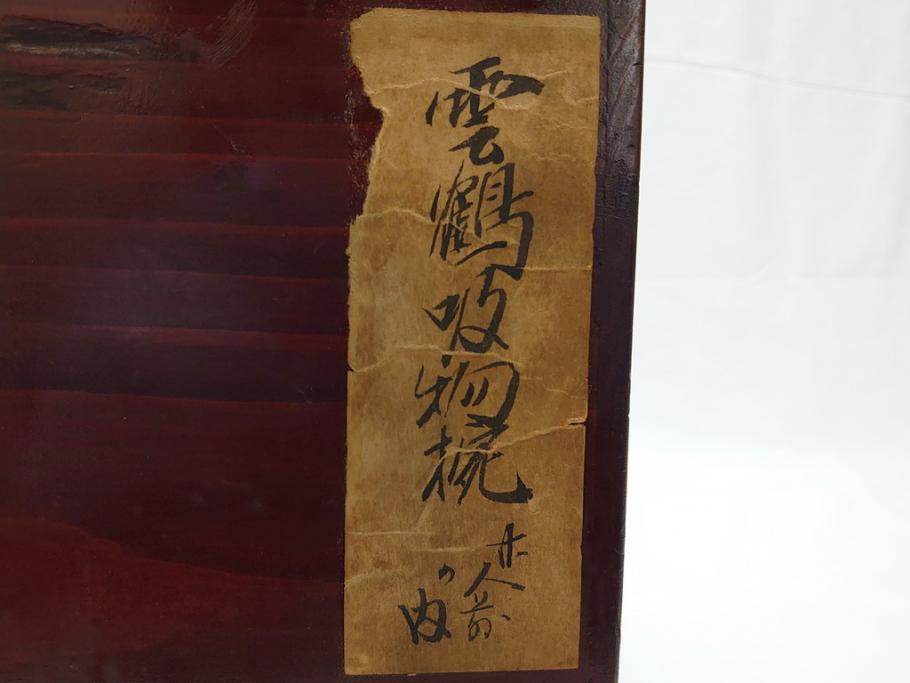 雲鶴吸物椀
廿人前
の内